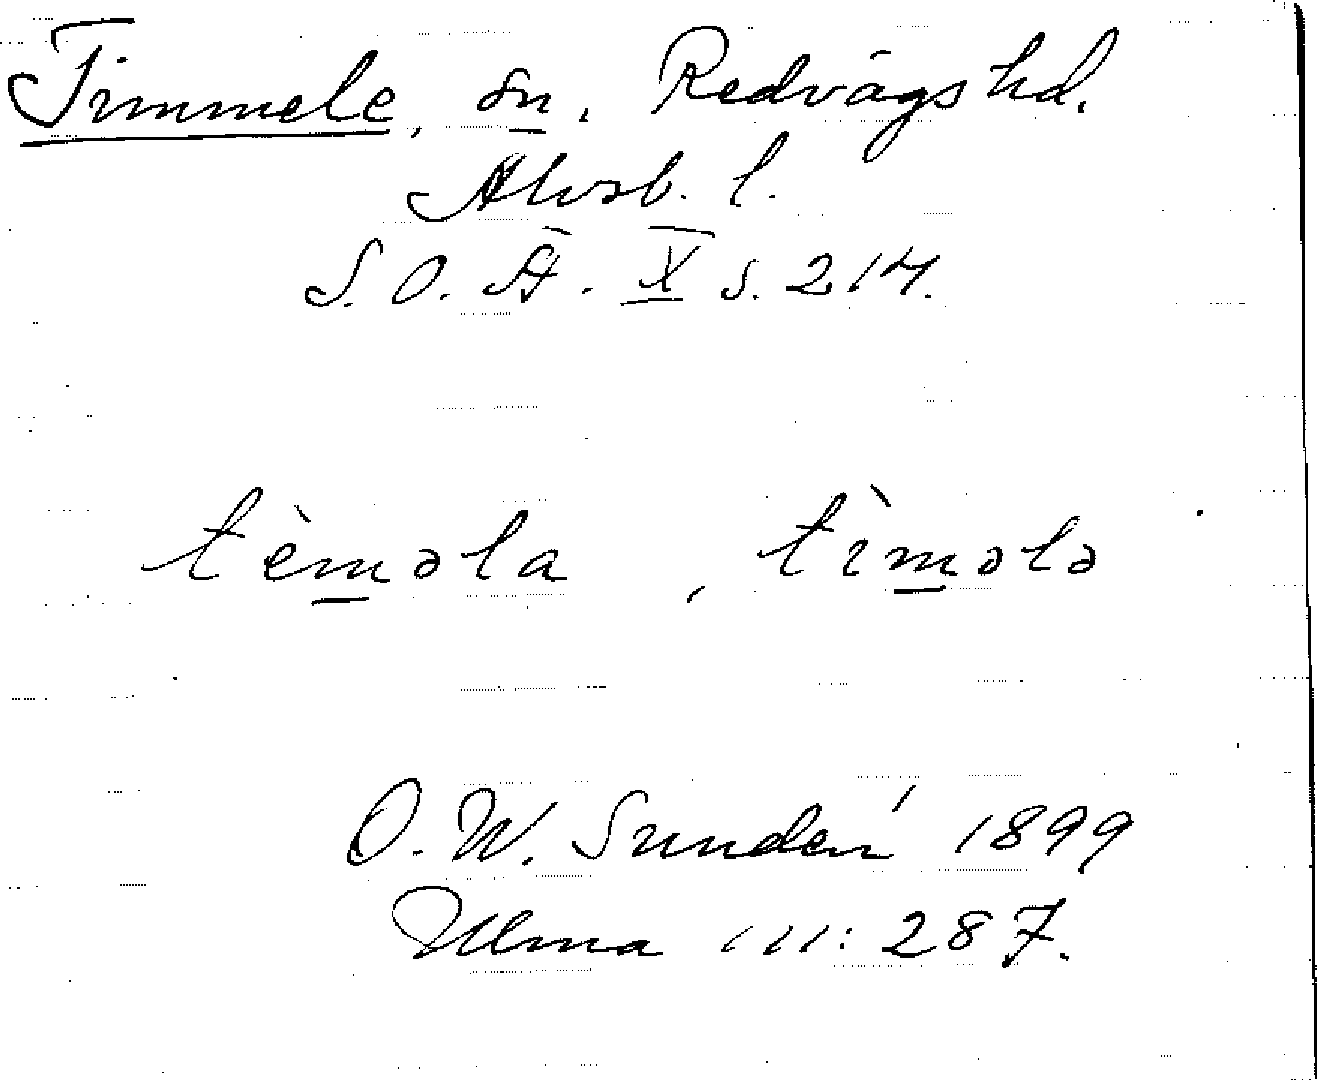 Timmele, sn, Redvägs hd.
Älvsb. l.
S. O. Ä. X s. 214.
tèm̲əla, tìm̲ələ
O. W. Sundén 1899
Ulma 111:287.